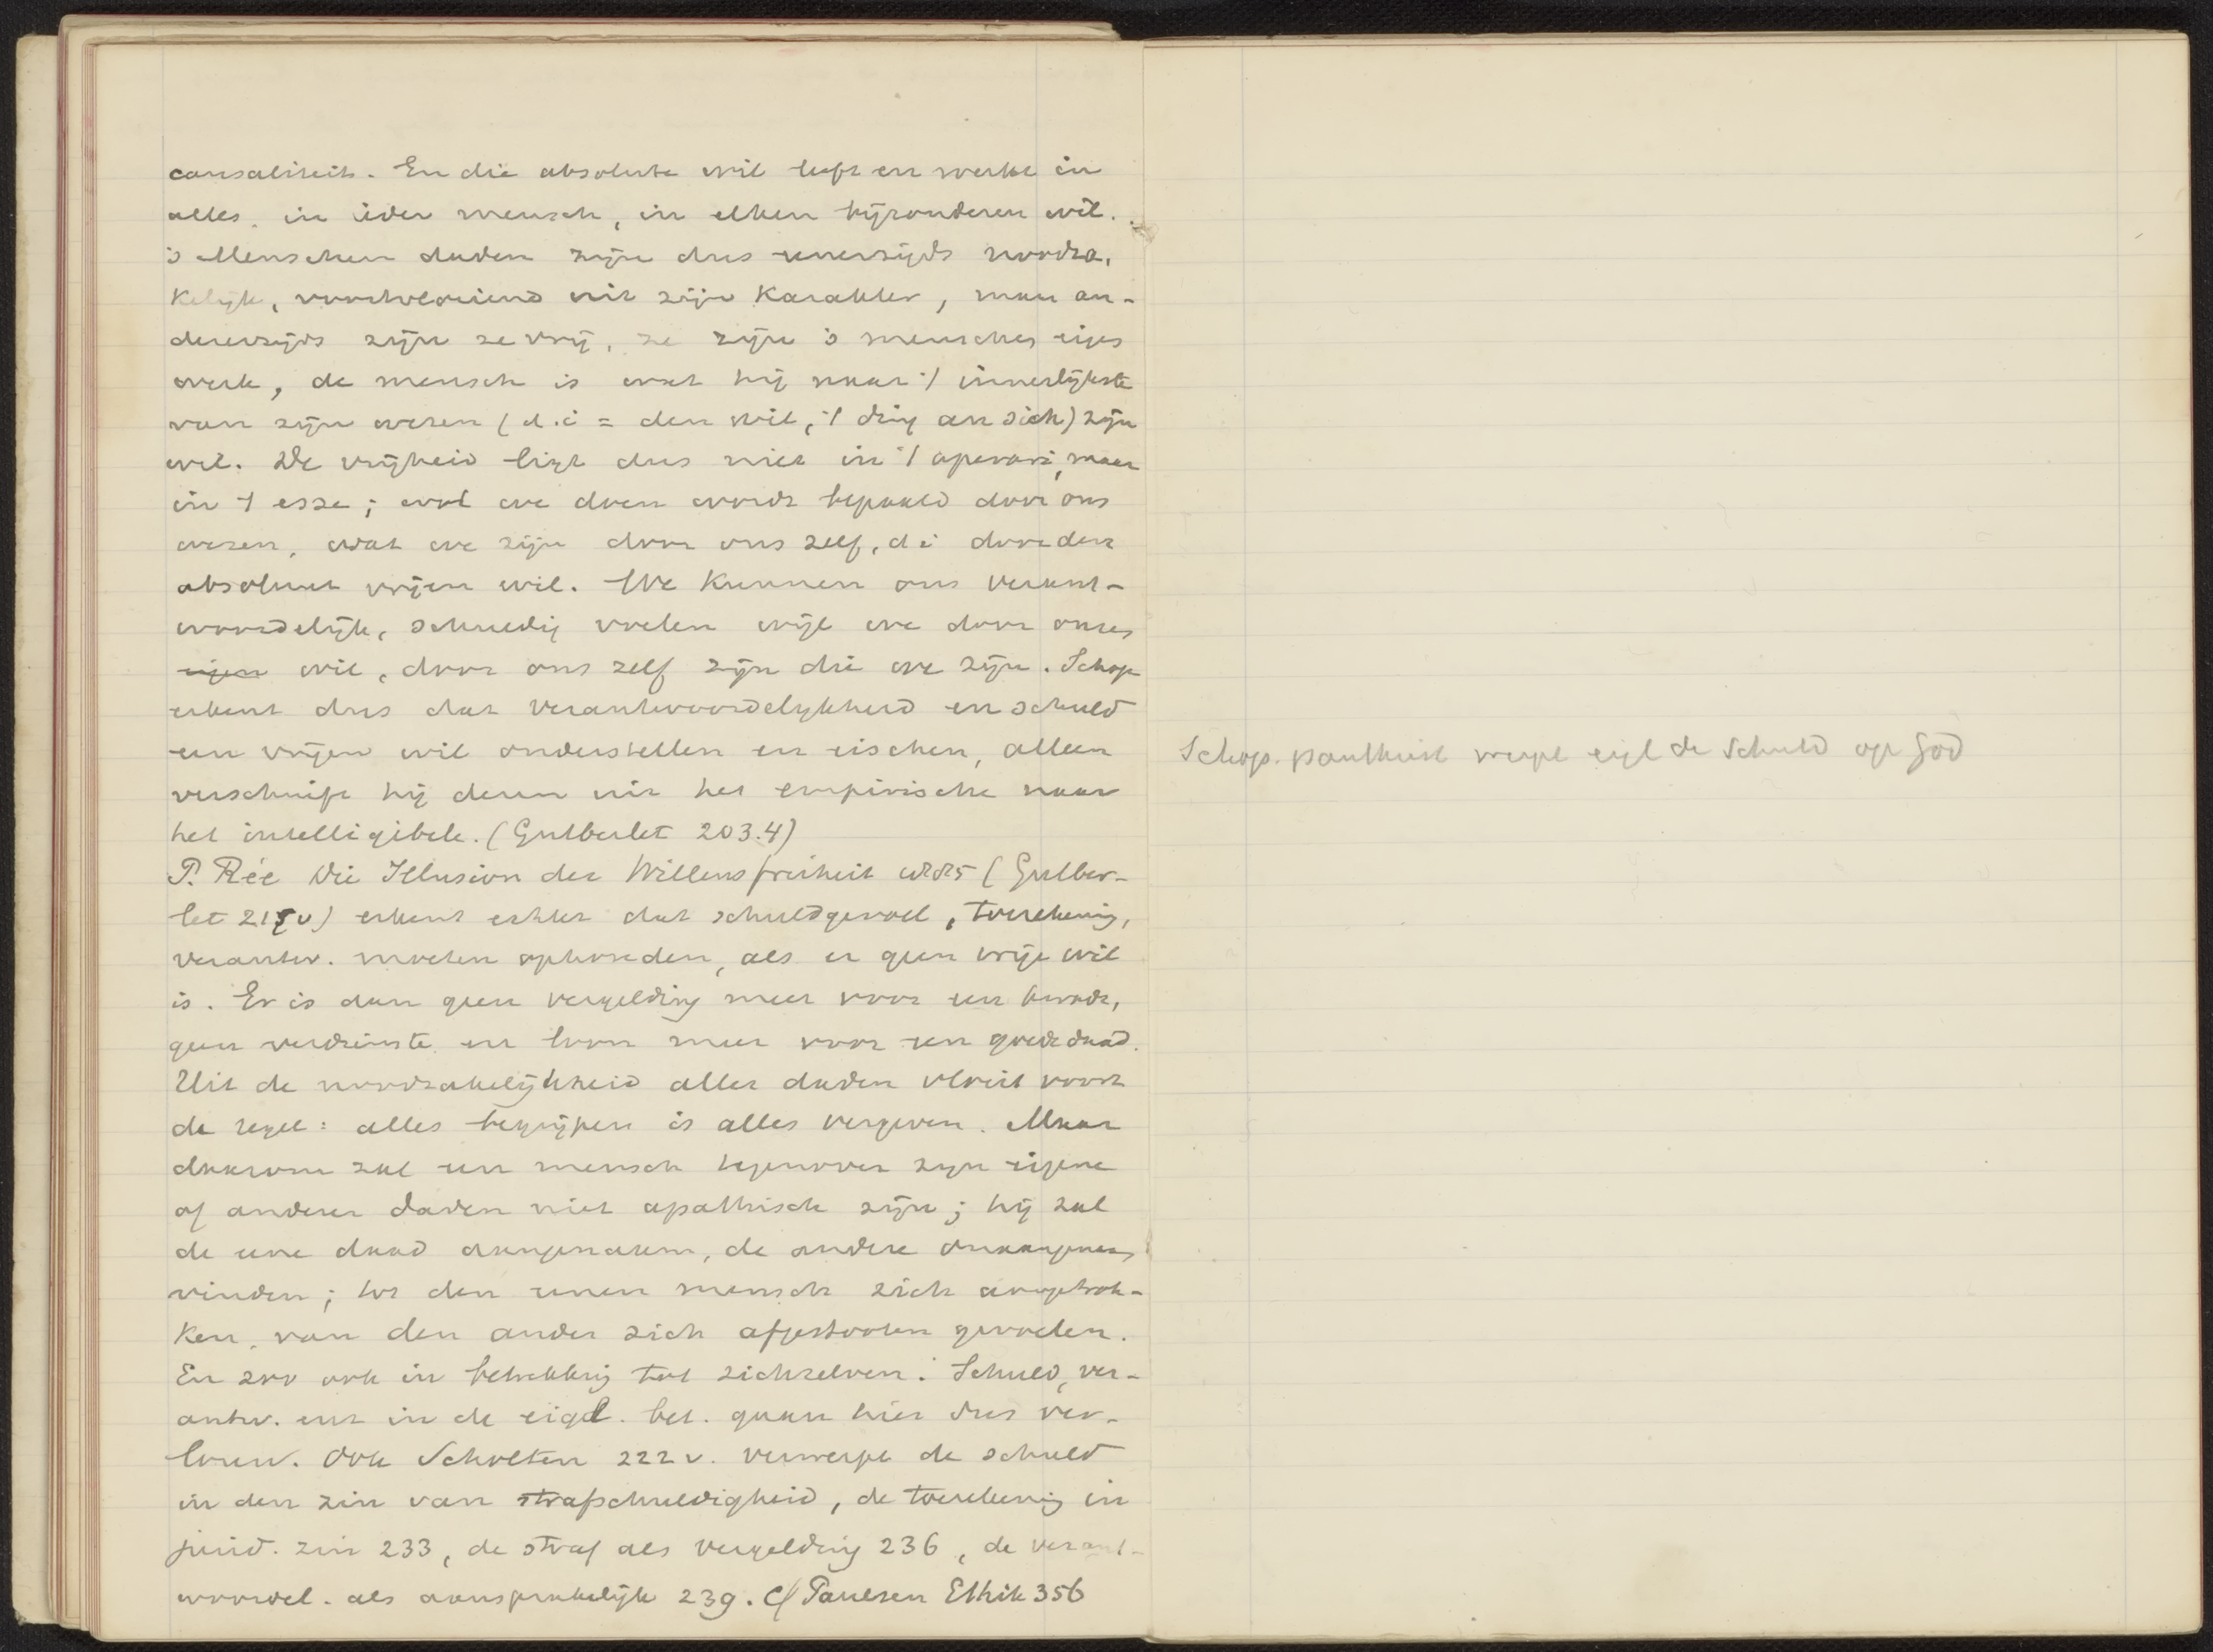 causaliteit. En die absolute wil leeft en werkt in
alles, in ieder mensch, in elken bijzonderen wil.
's Menschen daden zijn dus eenerzijds noodza,
kelijk, voortvloeiend uit zijn Karakter, maar an-
dererzijds zijn ze vrij, ze zijn 's menschen eigen
werk, de mensch is wat hij naar 't innerlijkste
van zijn wezen (d.i = den wil, 't ding an sich) zijn
wil. De vrijheid ligt dus niet in 't operari, maar
in 't esse; wat we doen wordt bepaald door ons
wezen, wat we zijn door ons zelf, d i door den
absoluut vrijen wil. We kunnen ons verant-
woordelijk, schuldig voelen wijl we door onzen
eigen wil, door ons zelf zijn die we zijn. Schop
erkent dus dat verantwoordelijkheid en schuld
een vrijen wil onderstellen en eischen, alleen
verschuift hij dezen uit het empirische naar
het intelligibele. (Gutberlet 203.4)
P. Rée Die Illusion der Willensfreiheit 1885 (Gutber-
let 215 v) erkent echter dat schuldgevoel, toerekening,
verantw. moeten ophouden, als er geen vrije wil
is. Er is dan geen vergelding meer voor een kwade,
geen verdienste en loon meer voor een goede daad.
Uit de noodzakelijkheid aller daden vloeit voort
de regel: alles begrijpen is alles vergeven. Maar
daarom zal een mensch tegenover zijn eigene
of anderer daden niet apathisch zijn; hij zal
de eene daad aangenaam, de andere onaangenaam
vinden; tot den eenen mensch zich aangetrok-
ken, van den ander zich afgestooten gevoelen.
En zoo ook in betrekking tot zichzelven. Schuld, ver-
antw. enz in de eigel. bet. gaan hier dus ver-
loren. Ook Scholten 222 v. verwerpt de schuld
in den zin van strafschuldigheid, de toerekening in
jurid. zin 233, de straf als vergelding 236, de verant-
woordel. als aansprakelijk 239. Cf Paulsen Ethik 356
Schop. pantheist werpt eigl de schuld op God